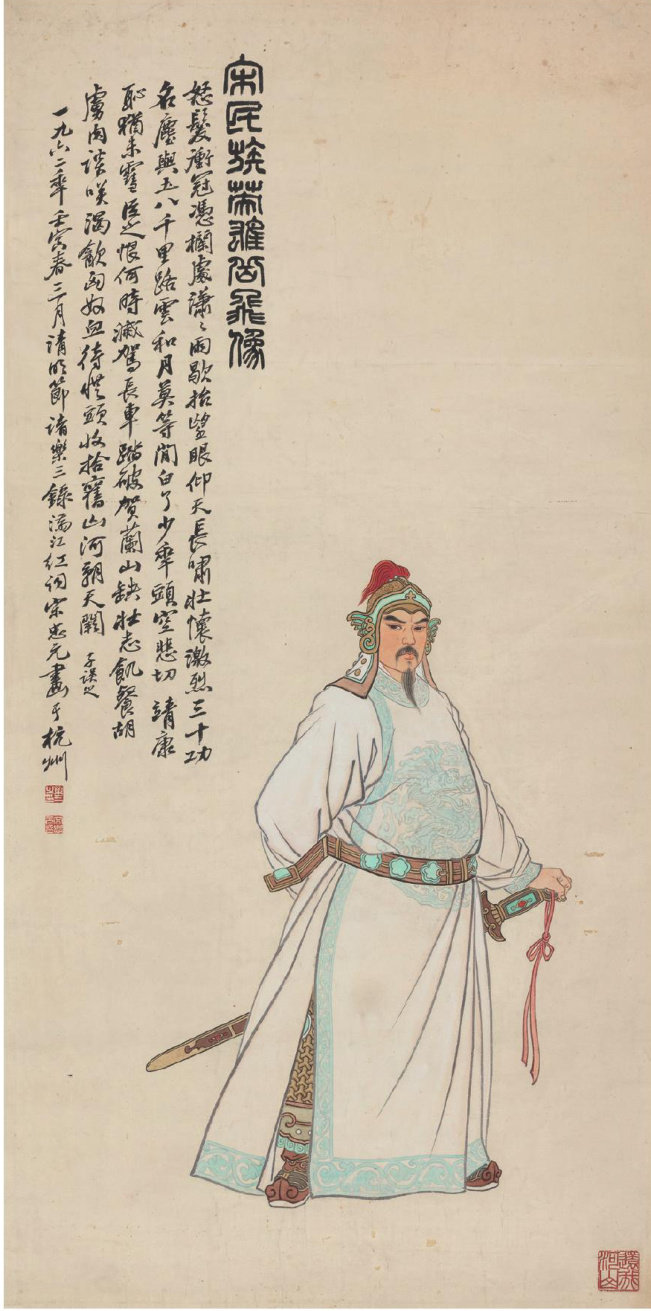 宋民族英雄岳飛像
怒髮衝冠憑欄處瀟〻雨歇抬望眼仰天長嘯壯懷激烈三十功
名塵與土八千里路雲和月莫等閒白了少年頭空悲切 靖康
恥猶未雪臣之恨何時滅駕長車踏破賀蘭山缺壯志飢餐胡
虜肉談笑渴飲匈奴血待從頭收拾舊山河朝天闕 子誤之
一九六二年壬寅春三月清明節諸樂三錄滿江紅詞宋忠元畫于杭州
還我河山